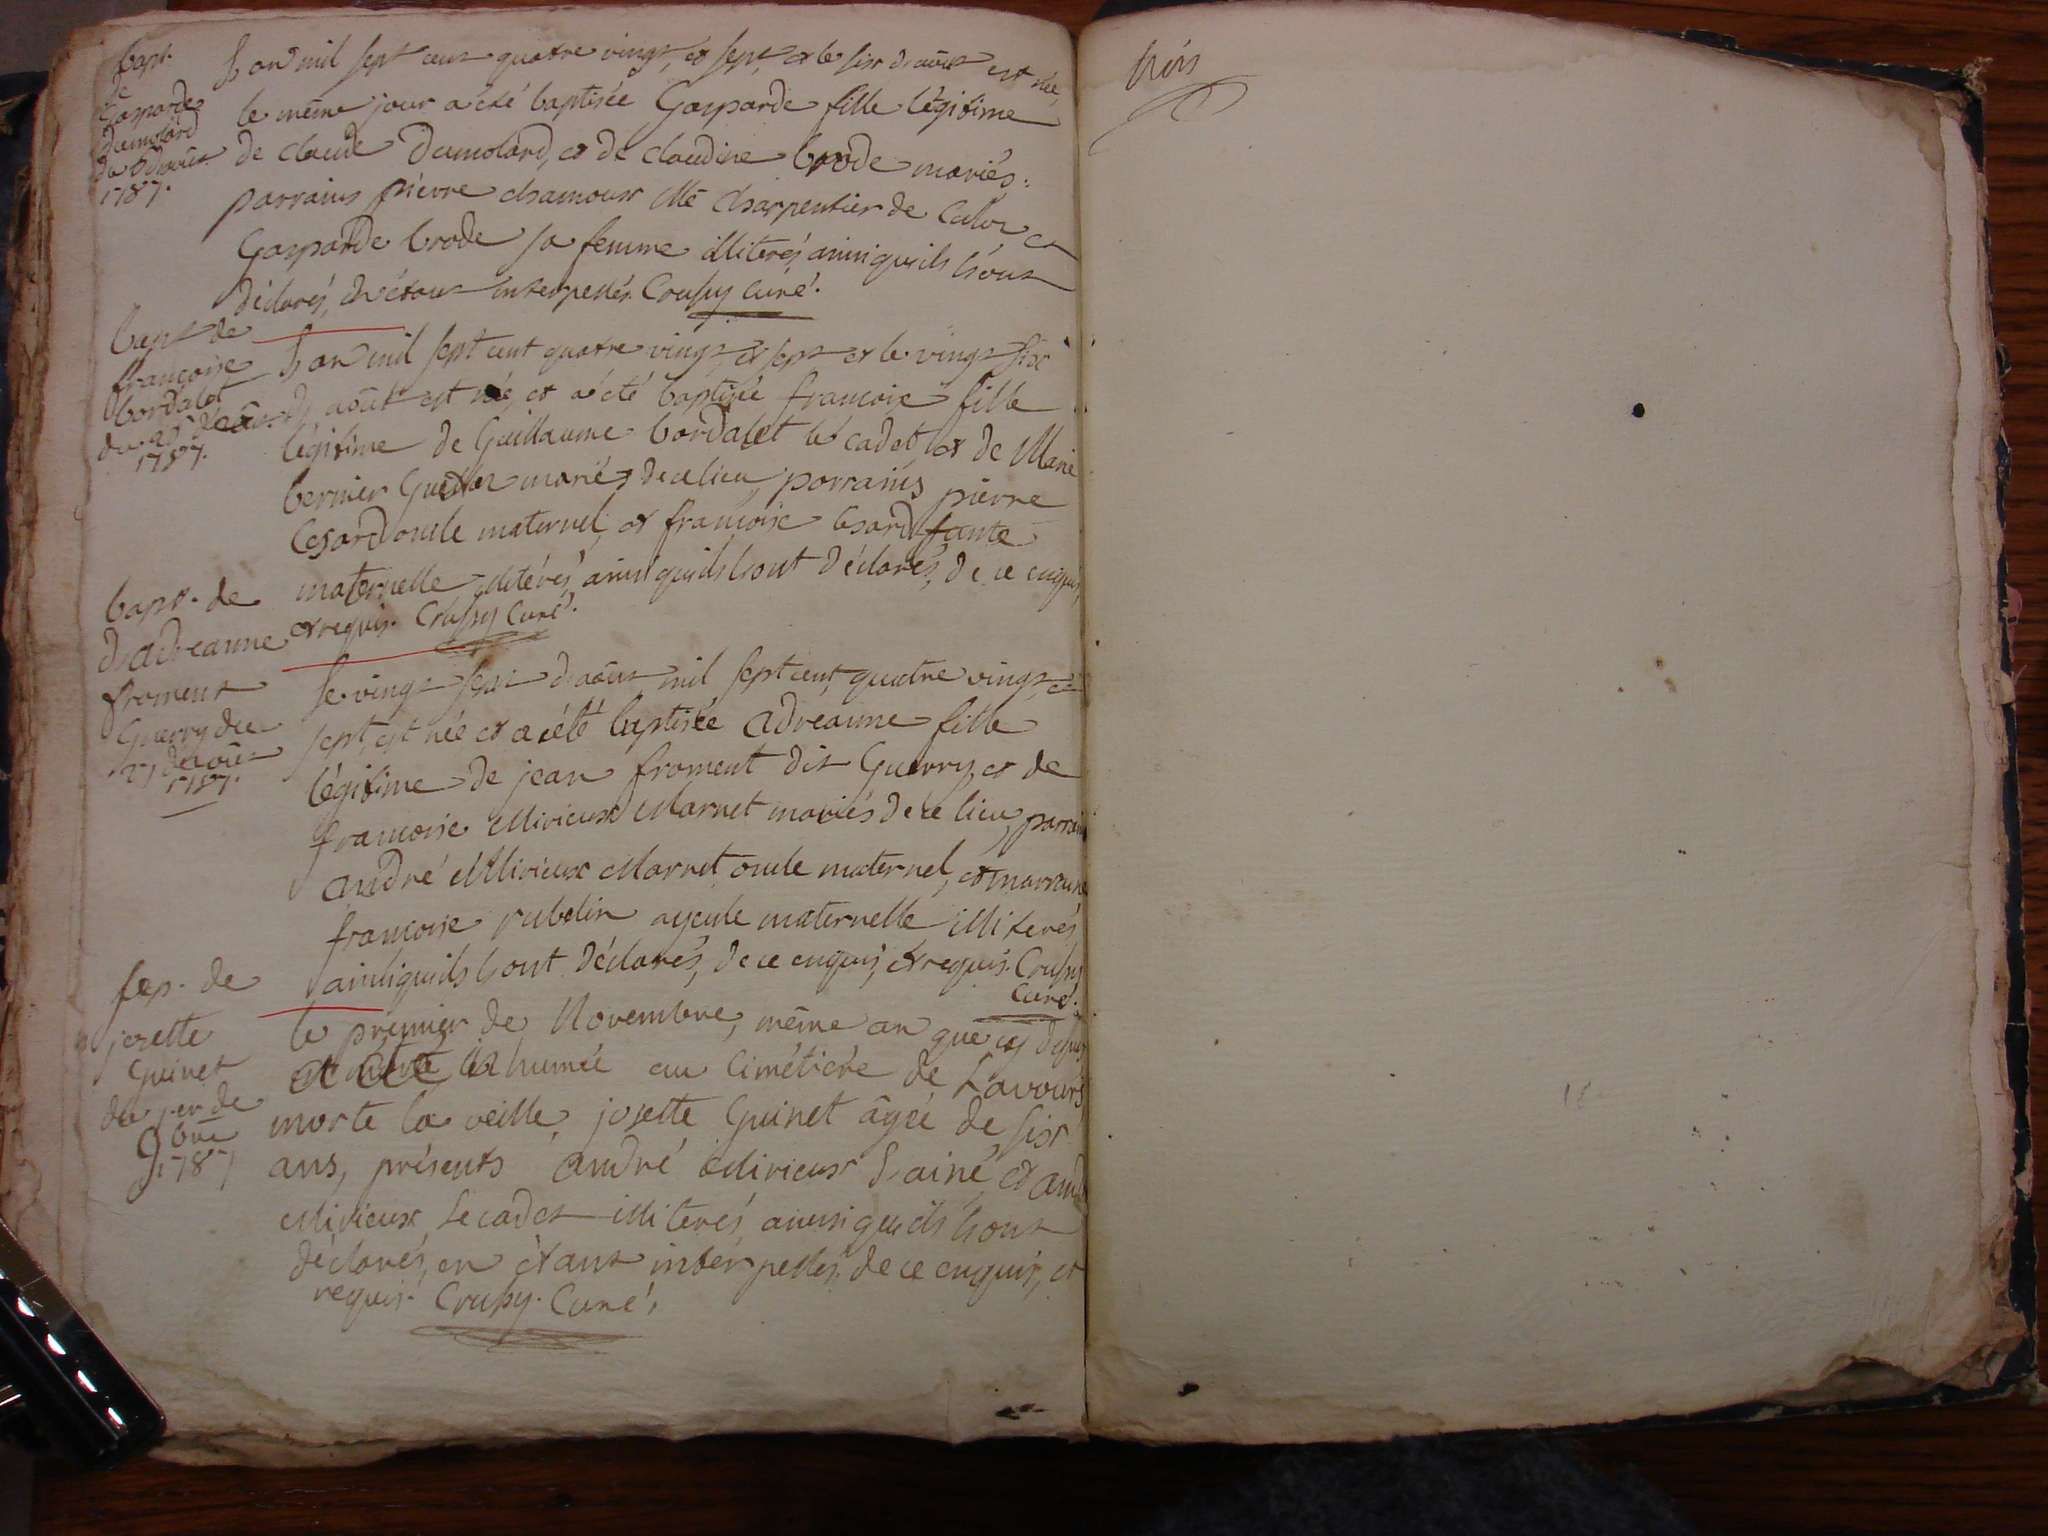 bapt.
de
Gasparde
dumolard
du 6 d'août
1787.
L'an mil sept cent quatre vingt, et sept, et le six d'août est née,
le même jour a été baptisée Gasparde fille légitime
de claude Dumolard, et de claudine brode mariés:
parrains pierre chamoux Me charpentier de Culoz et
Gasparde brode sa femme illiterés ainsi qu'ils l'ont
déclarés, en étant interpellés. Crussy Curé.
bapt de
francoise
bordalet
du 26 d'août
1787.
L'an mil sept cent quatre vingt, et sept et le vingt six
d'août est née, et a été baptisée francoise fille
légitime de Guillaume bordalet le cadet, et de Marie
bernier mariés de ce lieu, parrains pierre
Cesard oncle maternel, et francoise Cesard tante
maternelle illiterés, ainsi qu'ils l'ont déclarés, de ce enquis,
et requis. Crussy Curé.
bapt. de
d'adreanne
froment
Guerry du
27 d'août
1787.
Le vingt sept d'août mil sept cent, quatre vingt, et
sept, est née et a été baptisée adreanne fille
légitime de jean froment dit Guerry, et de
francoise Mivieux Marnet mariés de ce lieu, parrain
andré Mivieux Marnet, oncle maternel, et marraine
francoise rubelin ayeule maternelle illiterés,
ainsi qu'ils l'ont déclarés, de ce enquis, et requis. Crussy
Curé.
sep. de
josette
Guinet
du 1.er de
9bre
1787
le premier de Novembre, même an que cy dessus
a été inhumée au cimétiere de Lavours
morte la veille, josette Guinet âgée de six
ans, présents andré Mivieux L'ainé et andré
Mivieux Le cadet illiterés, ainsi qu'ils l'ont
déclarés, en étant interpellés, de ce enquis, et
requis. Crussy. Curé.
trois